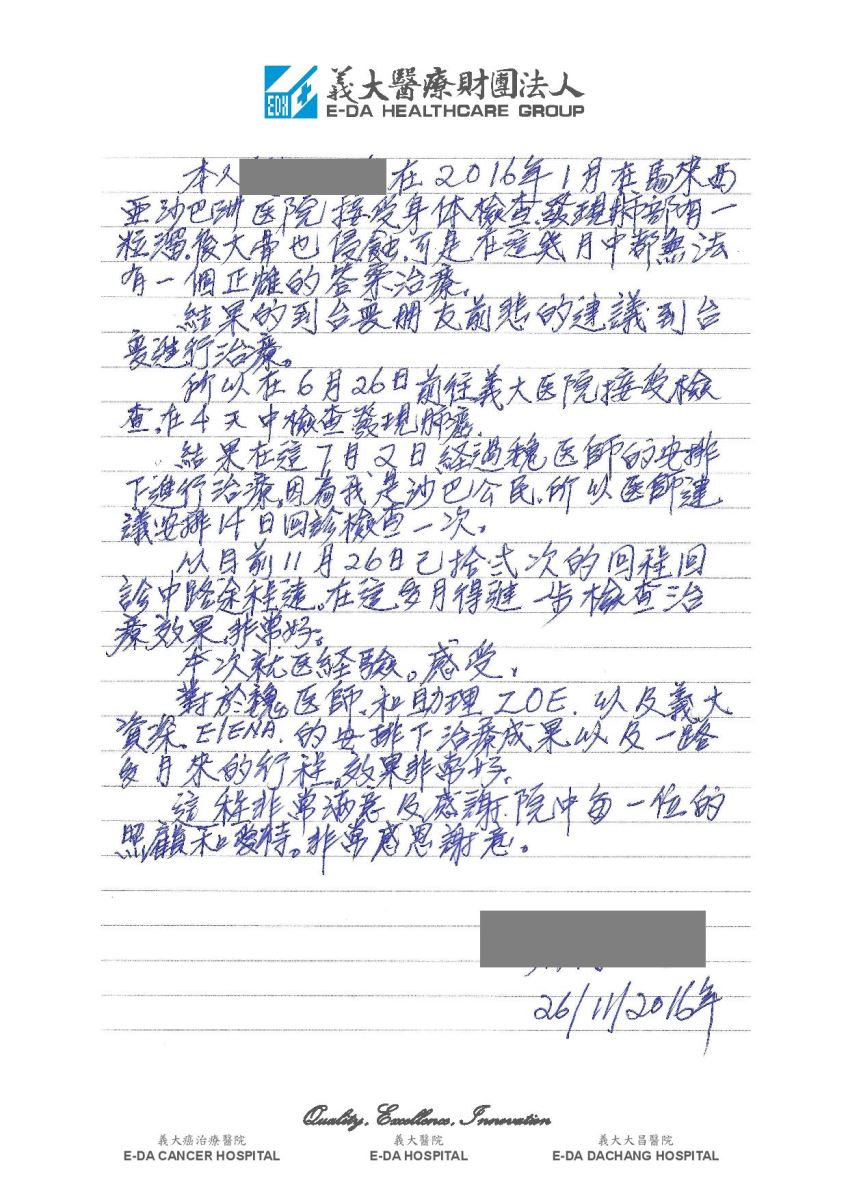 義大醫療財團法人
E-DA HEALTHCARE GROUP
本人 在2016年1月在馬來西
亚沙巴洲医院接受身体檢查,發現肺部有一
粒溜.後大骨也侵蝕,可是在這幾月中都無法
有一個正雄的答案治療。
結果的到台灣朋友前悲的建議到台
灣進行治療。
所以在6月26日前往義大医院接受檢
查,在4天中檢查發現肺癌.
結果在這7月又日経過魏医師的安排
下進行治療,因為我是沙巴公民.所以医師建
議安排14日回診檢查一次。
以目前11月26日已拾弍次的回程回
診中路途程遠。在這多月得進一步檢查治
療效果.非常好。
本次就医経驗。感受.
對於魏医師.和助理ZOE.以及義大
資深.ElENA.的安排下治療成果以及一路
多月來的行程.效果非常好.
這程非常滿意及感謝.院中每一位的
照顧和愛待。非常感恩謝意。
26/11/2016年
Quality, Excellence, Innovation
義大癌治療醫院 義大醫院 義大大昌醫院
E-DA CANCER HOSPITAL E-DA HOSPITAL E-DA DACHANG HOSPITAL